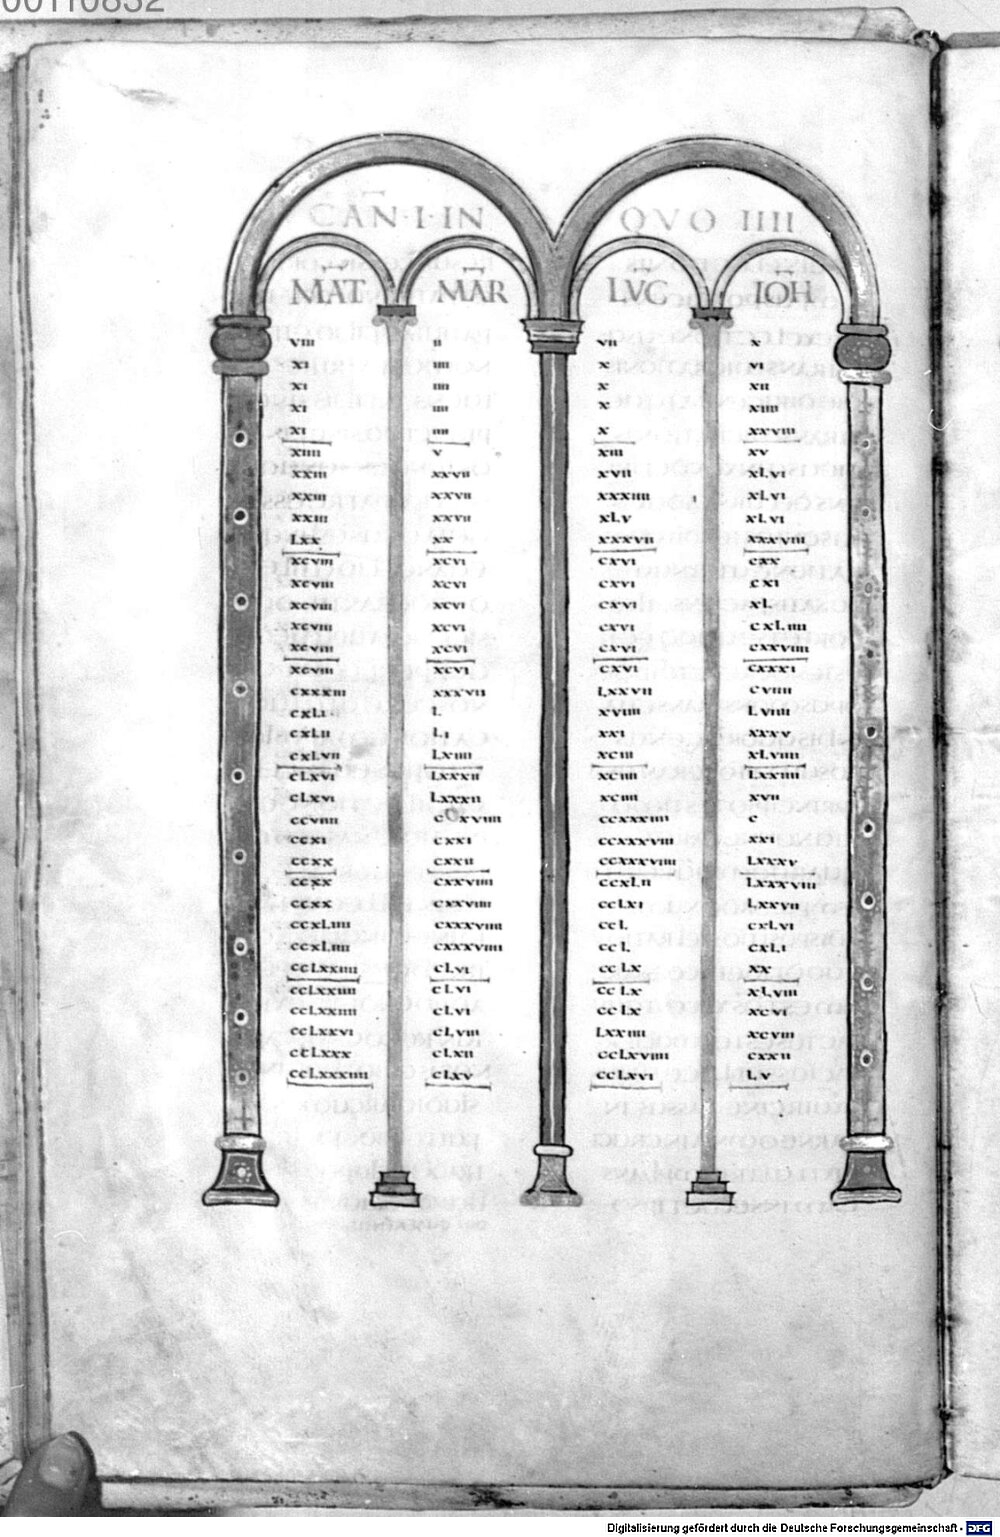 00110832
CAN·I·IN QVO IIII
MAT MAR LVC IOH
viii ii vii x
xi iiii x vi
xi iiii x xii
xi iiii x xiiii
xi iiii x xxviii
xiiii v xiii xv
xxiii xxvii xvii xLvi
xxiii xxvii xxxiiii xLvi
xxiii xxvii xLv xLvi
Lxx xx xxxvii xxxviii
xcviii xcvi cxvi cxx
xcviii xcvi cxvi cxi
xcviii xcvi cxvi xL
xcviii xcvi cxvi cxLiiii
xcviii xcvi cxvi cxxviiii
xcviii xcvi cxvi cxxxi
cxxxiii xxxvii Lxxvii cviiii
cxLi L xviiii Lviiii
cxLii Li xxi xxxv
cxLvii Lxiiii xciii xLviiii
cLxvi Lxxxii xciiii Lxxiiii
cLxvi Lxxxii xciiii xvii
ccviiii cxviiii ccxxxiiii c
ccxi cxxi ccxxxviii xxi
ccxx cxxii ccxxxviiii Lxxxv
ccxx cxxviiii ccxLii Lxxxviii
ccxx cxxviiii ccLxi Lxxvii
ccxLiiii cxxxviiii ccL cxLvi
ccxLiiii cxxxviiii ccL cxLi
ccLxxiiii cLvi ccLx xx
ccLxxiiii cLvi ccLx xLviii
ccLxxiiii cLvi ccLx xcvi
ccLxxvi cLviii Lxxiiii xcviii
ccLxxx cLxii ccLxviiii cxxii
ccLxxxiiii cLxv ccLxvi Lv
Digitalisierung gefördert durch die Deutsche Forschungsgemeinschaft - DFG